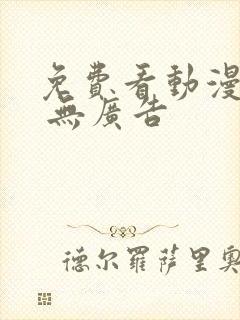 免費看動漫
無廣告
德尔羅薩里奧